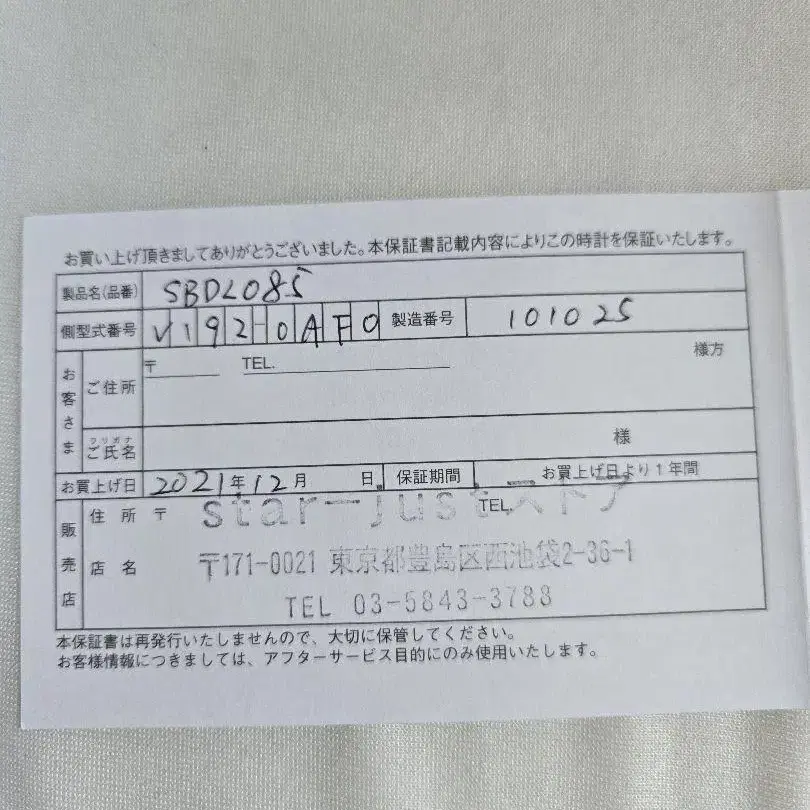 お買い上げ頂きましてありがとうございました。本保証書記載内容によりこの時計を保証いたします。
製品名(品番) SBDL085
側型式番号 V192-0AF0 製造番号 101025
お客さま
ご住所 〒 TEL. 様方
フリガナ
ご氏名 様
お買上げ日 2021年12月 日 保証期間 お買上げ日より1年間
販売店
住所 〒 TEL.
star-justストア
店名 〒171-0021 東京都豊島区西池袋2-36-1
TEL 03-5843-3788
本保証書は再発行いたしませんので、大切に保管してください。
お客様情報につきましては、アフターサービス目的にのみ使用いたします。